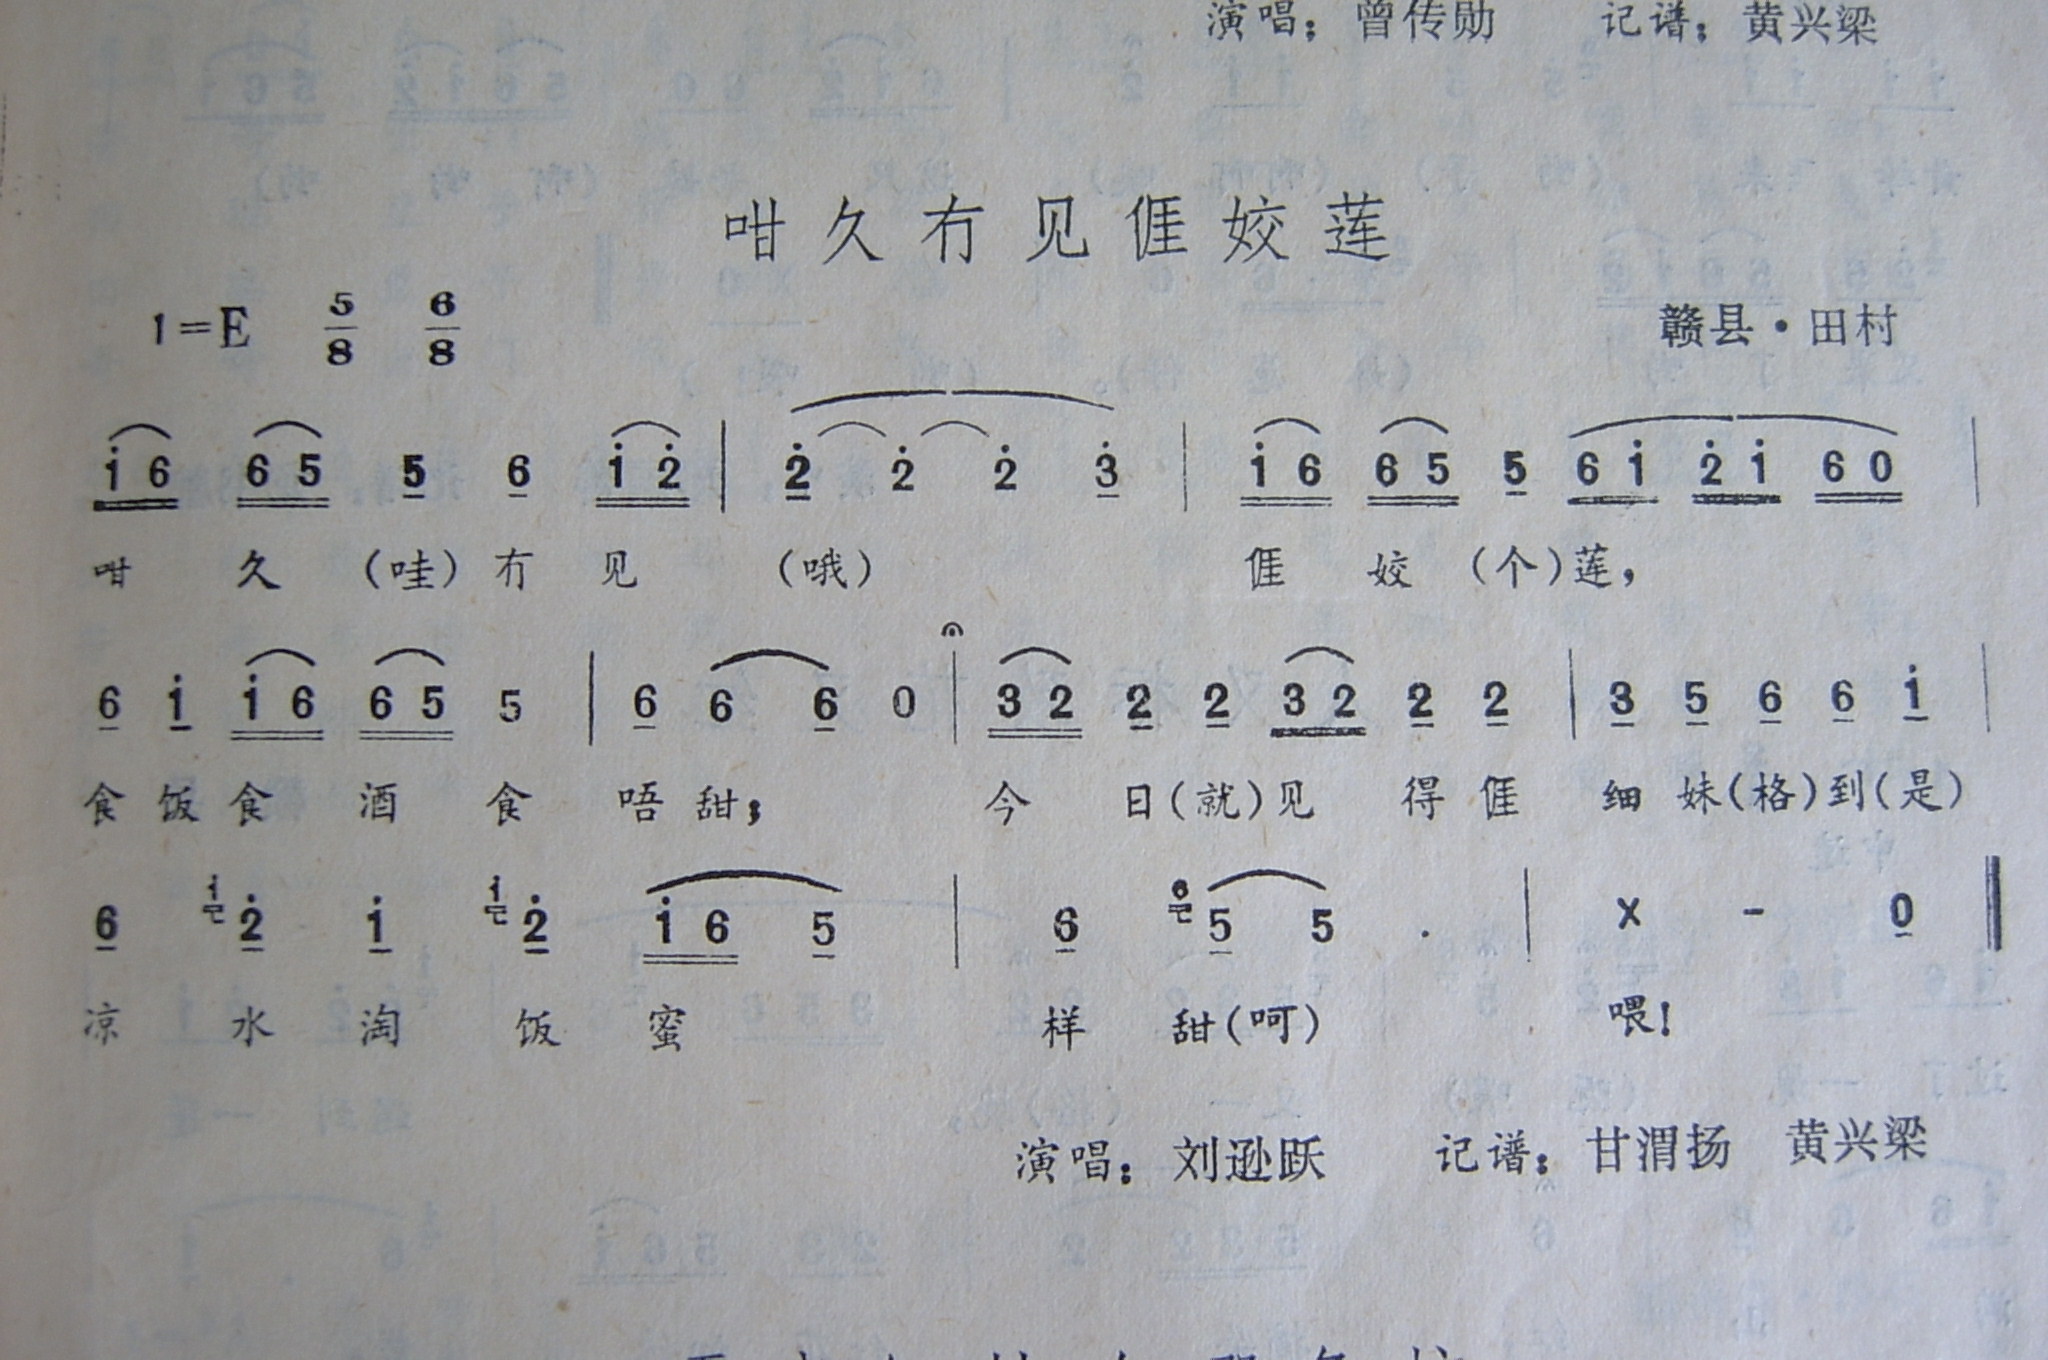 演唱：曾传勋 记谱：黄兴梁
咁久冇见𠊎姣莲
1=E 5/8 6/8 赣县·田村
i 6 6 5 5 6 i 2̇ | 2̇ 2̇ 2̇ 3̇ | i 6 6 5 5 6 i 2̇ i 6 0 |
咁 久 （哇）冇 见 （哦） 𠊎 姣 （个）莲，
6 i i 6 6 5 5 | 6 6 6 0 | 3 2 2 2 3 2 2 2 | 3 5 6 6 i |
食 饭 食 酒 食 唔 甜； 今 日（就）见 得 𠊎 细 妹（格）到（是）
6 i 2̇ i i 2̇ i 6 5 | 6 6 5 5 . | X - 0 ‖
凉 水 淘 饭 蜜 样 甜（呵） 喂！
演唱：刘逊跃 记谱：甘渭扬 黄兴梁